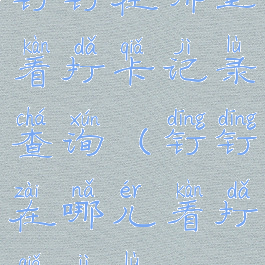 钉钉在哪里
kàn dǎ qiǎ jì lù
看打卡记录
chá xún dīng dīng
查询（钉钉
zài nǎ ér kàn dǎ
在哪儿看打
qiǎ jì lù